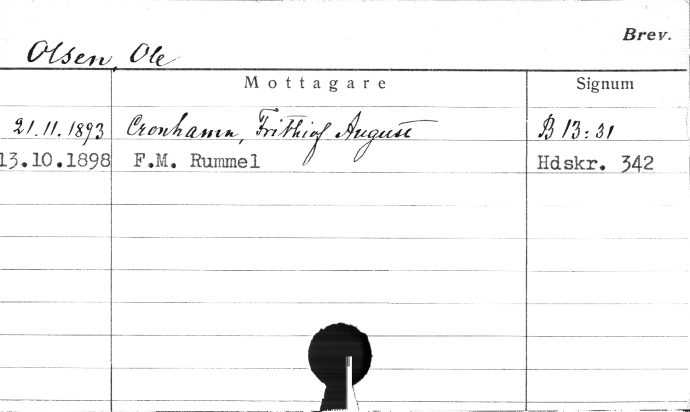 Brev.
Olsen, Ole
Mottagare Signum
21.11.1893 Cronhamn, Frithiof August B 13:31
13.10.1898 F.M. Rummel Hdskr. 342